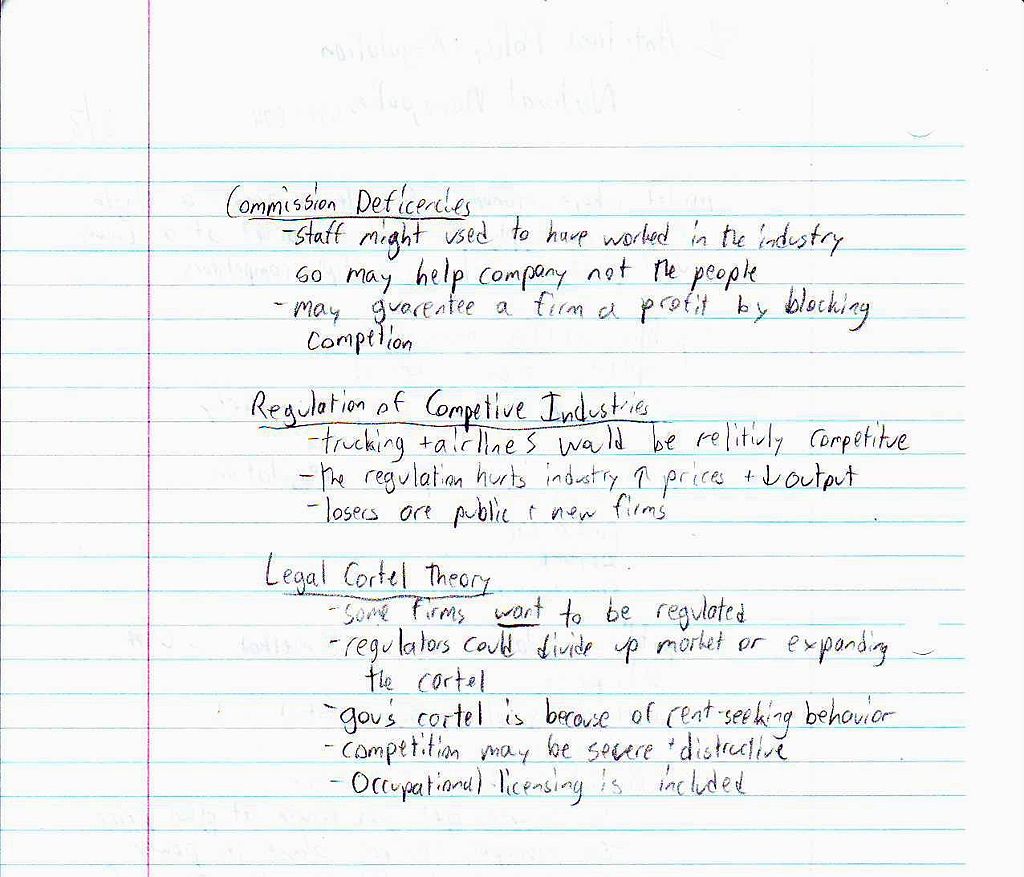 Commission Deficercies
-staff might used to have worked in the industry
so may help company not the people
- may guarentee a firm a profit by blocking
Competion
Regulation of Competive Industries
-trucking + airlines would be relitivly competitive
-the regulation hurts industry ↑ prices + ↓ output
-losers are public + new firms
Legal Cartel Theory
-some firms want to be regulated
-regulators could divide up market or expanding
the cartel
-gov's cartel is because of rent-seeking behavior
-competition may be severe + distructive
- Occupational licensing is included